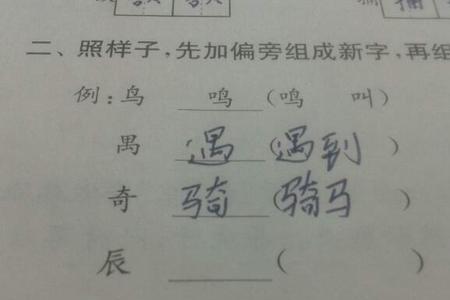 二、照样子,先加偏旁组成新字,再组
例:鸟 鸣 (鸣 叫)
禺 遇 (遇到 )
奇 骑 (骑马 )
辰 ( )